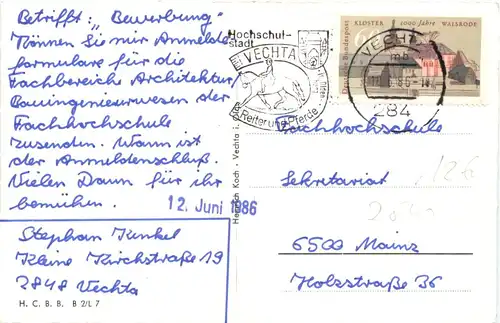 Betrifft: "Bewerbung"
Können Sie mir Anmelde
formulare für die
Fachbereiche Architektur,
Bauingenieurwesen der
Fachhochschule
zusenden. Wann ist
der Anmeldenschluß.
Vielen Dann für ihr
bemühen.
12. Juni 1986
Stephan Kunkel
Kleine Kirchstraße 19
2848 Vechta
H. C. B. B. B 2/L 7
Hochschul-
stadt
VECHTA
Reiter und Pferde
Heinrich Koch · Vechta i.
Deutsche Bundespost
KLOSTER 1000 Jahre WALSRODE
60
VECHTA
mb
284
Fachhochschule
Sekretariat
126
6500 Mainz
Holzstraße 36